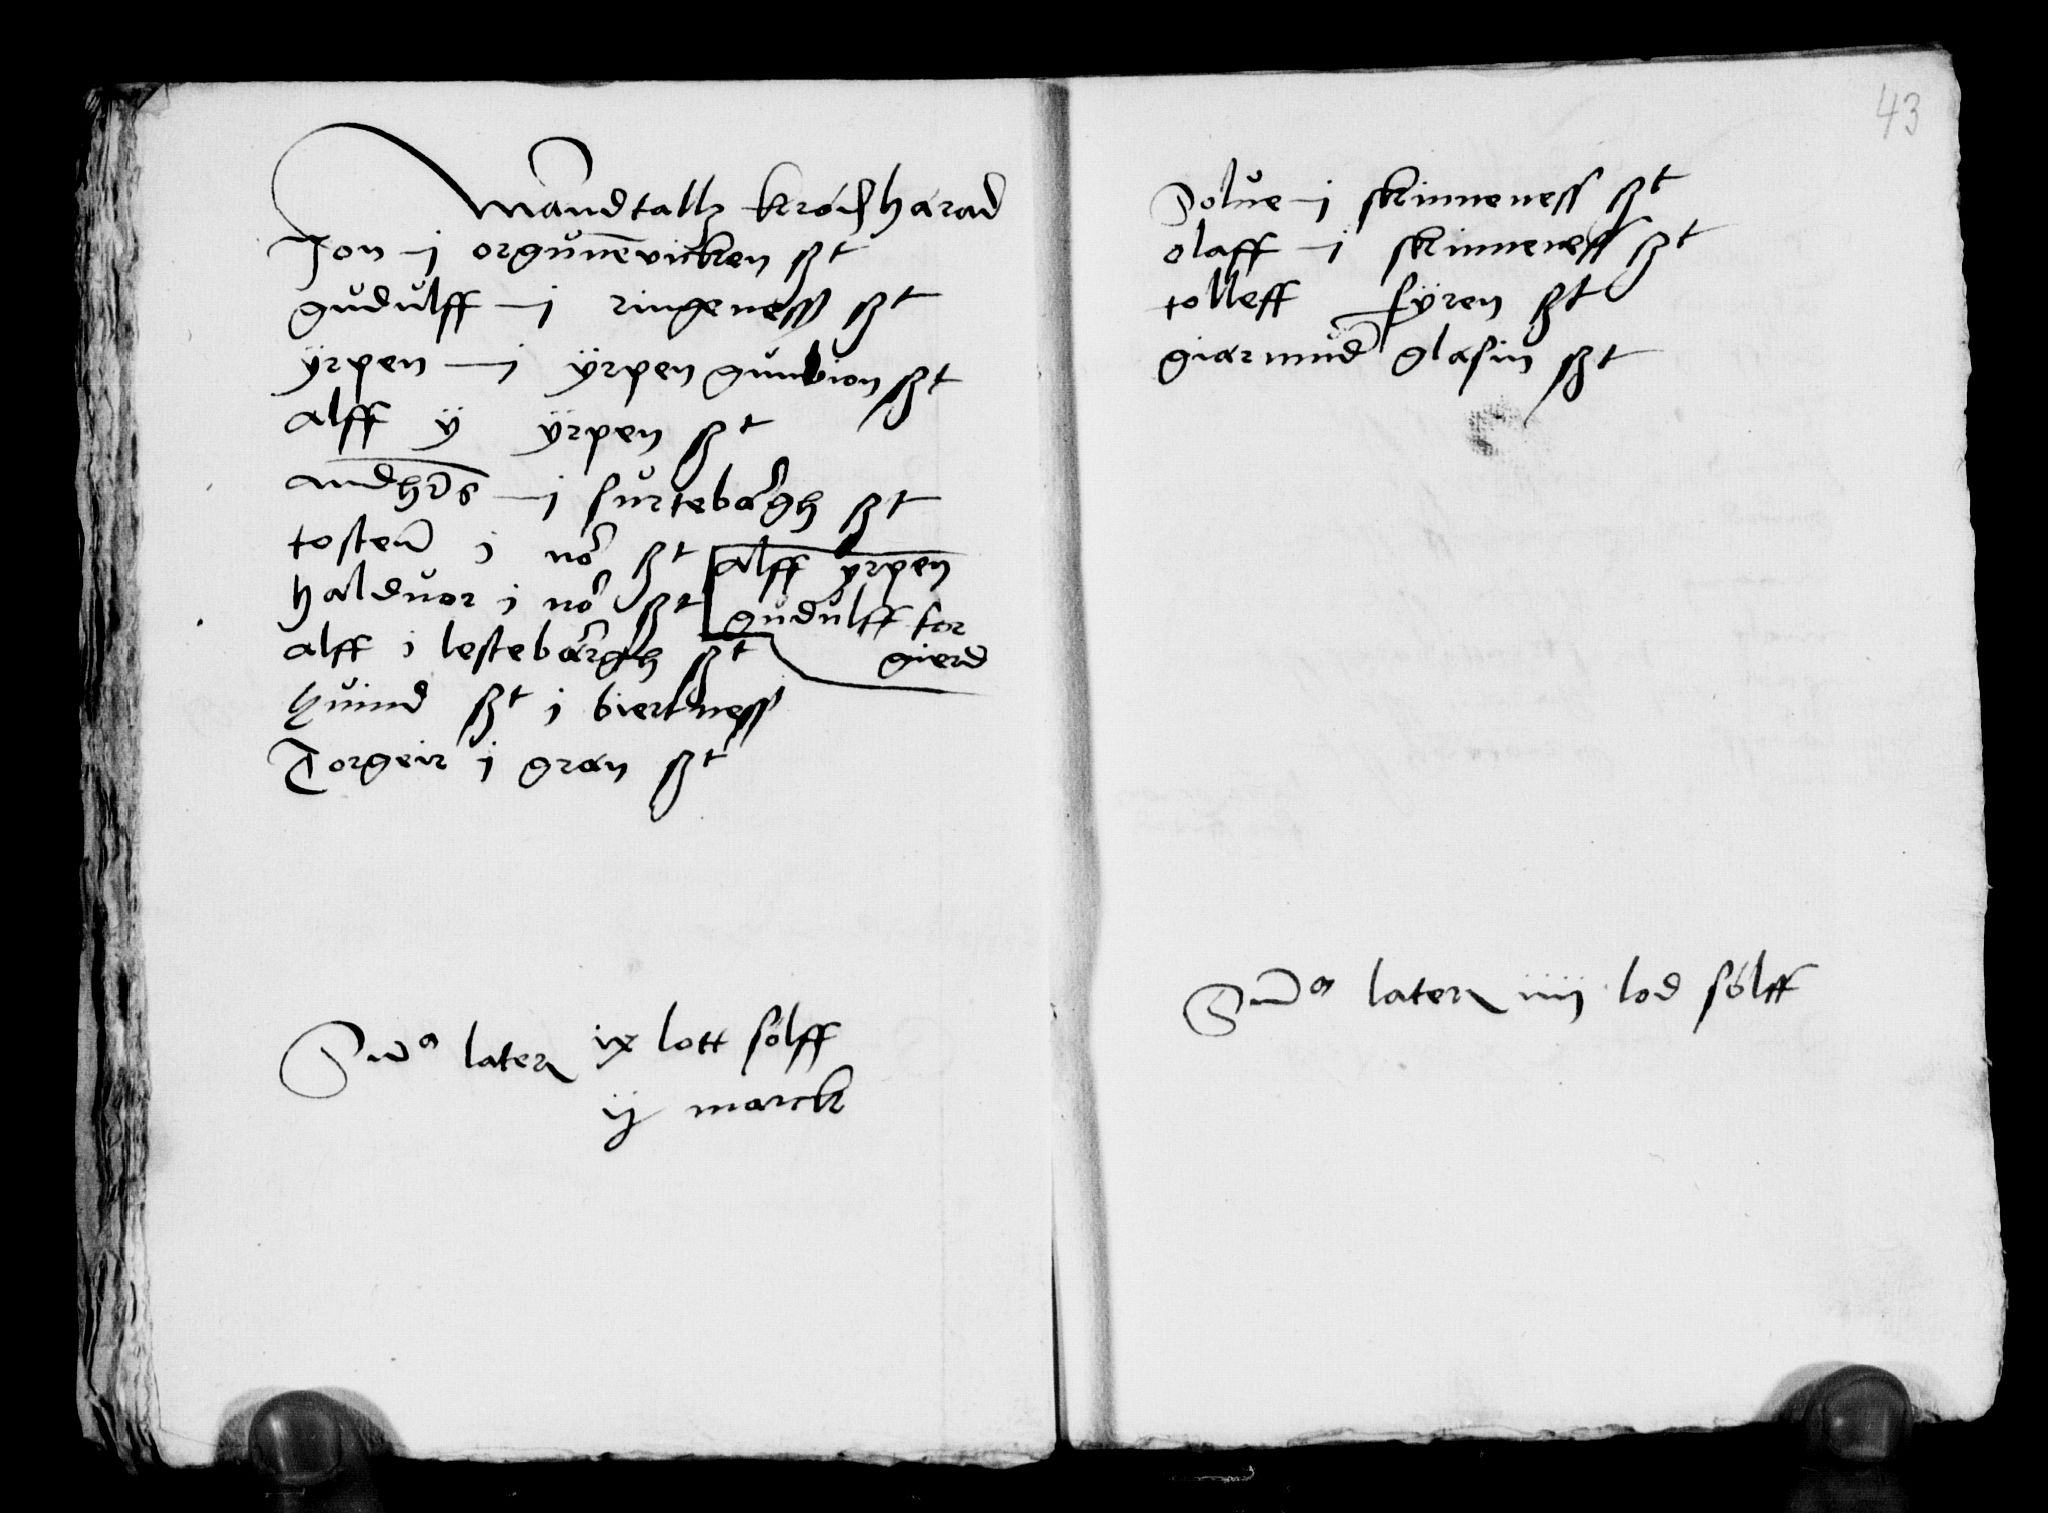 Mandtalls krødsharad
Jon i orgunevicken szt
gudulff i ringeness szt
ÿrpen i ÿrpen gunbion szt
alff ÿ ÿrpen szt
andhrs i surtebårgh szt
tosten i nór szt
halduor i nór szt
alff i lestebårgh szt
huind szt i biertness
Torgeir i gran szt
alff yrpen
gudulff for
gierd
Suma later ix lott sølff
ij marck
43
Tolue i skinneness szt
olaff i skinneness szt
tolleff fÿren szt
giarmund glasin szt
Suma later iiij lod sølff